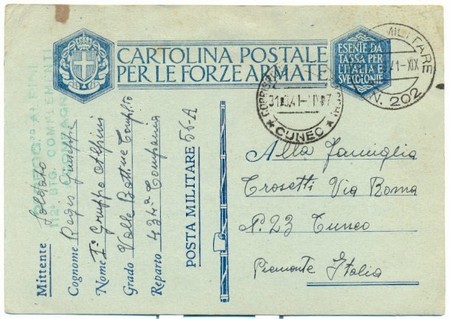 CARTOLINA POSTALE
PER LE FORZE ARMATE
ESENTE DA
TASSA PER
L'ITALIA E
SUE COLONIE
MILITARE
41-XIX
N. 202
31.
41-1
CUNEO
Mittente Soldato
Cognome Regis Giuseppe
Nome I° Gruppo Alpini
Grado Valle Battne Complto
Reparto 434a Compania
POSTA MILITARE 56-A
Alla Famiglia
Crosetti Via Roma
N. 23 Cuneo
Piemonte Italia